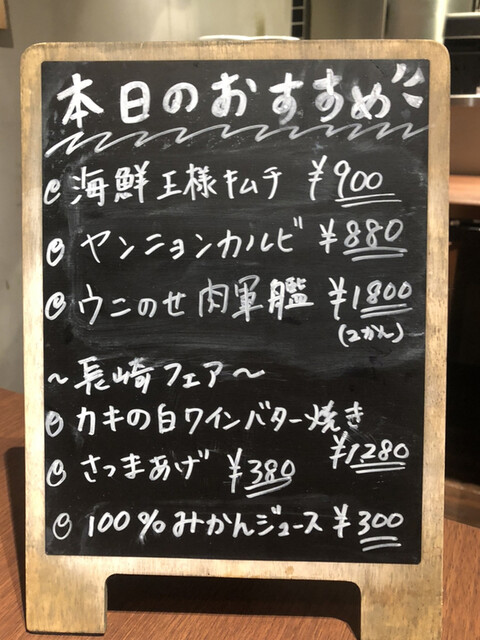 本日のおすすめ
海鮮王様キムチ ¥900
ヤンニョンカルビ ¥880
ウニのせ肉軍艦 ¥1800
(2かん)
～長崎フェア～
カキの白ワインバター焼き
¥1280
さつまあげ ¥380
100%みかんジュース ¥300